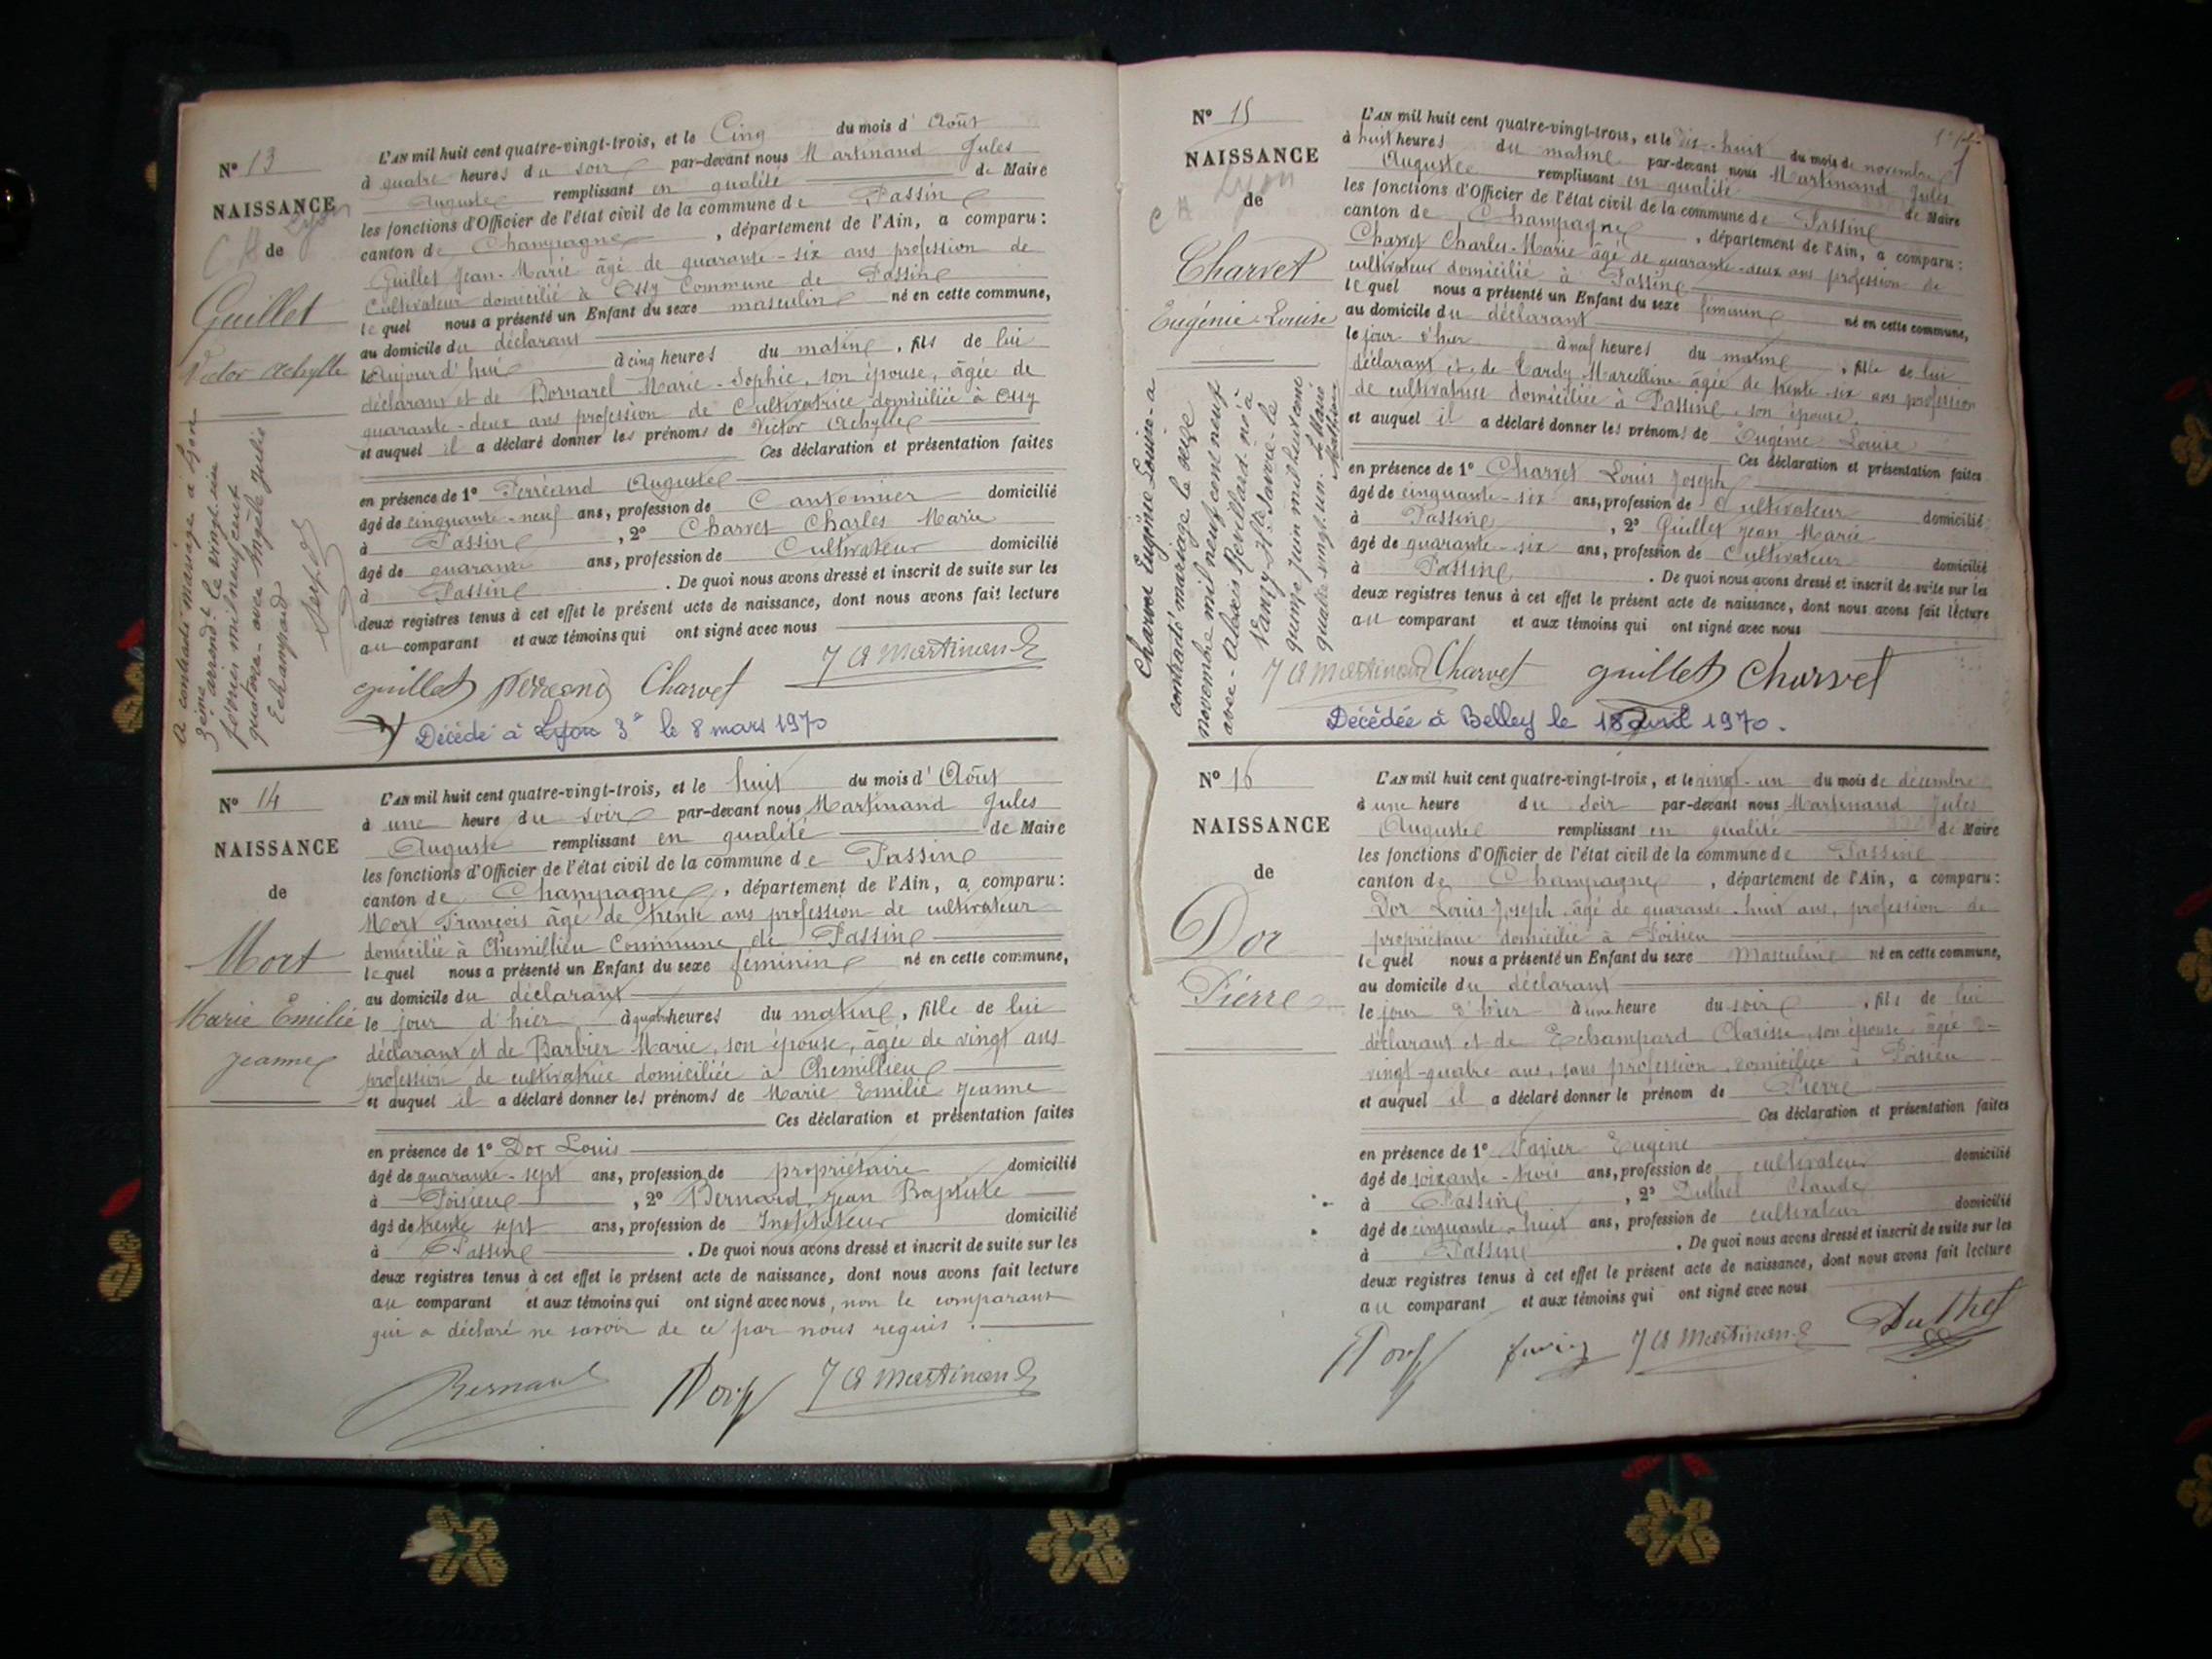 N° 13
NAISSANCE
Lyon
de
Guillet
Victor Achylle
A contracté mariage à Lyon
3ème arrondt le vingt-un
février mil neuf cent
quatorze avec Angèle Julie
Echampard
L'AN mil huit cent quatre-vingt-trois, et le Cinq du mois d'Août
à quatre heures du soir par-devant nous Martinand Jules
Auguste remplissant en qualité de Maire
les fonctions d'Officier de l'état civil de la commune de Passin
canton de Champagne, département de l'Ain, a comparu:
Guillet Jean-Marie âgé de quarante-six ans profession de
Cultivateur domicilié à Ossy Commune de Passin
lequel nous a présenté un Enfant du sexe masculin né en cette commune,
au domicile du déclarant
Aujourd'hui à cinq heures du matin, fils de lui
déclarant et de Bornarel Marie-Sophie, son épouse, âgée de
quarante-deux ans profession de Cultivatrice domiciliée à Ossy
et auquel il a déclaré donner les prénoms de Victor Achylle
Ces déclaration et présentation faites
en présence de 1° Perréand Auguste
âgé de cinquante-neuf ans, profession de Cantonnier domicilié
à Passin, 2° Charvet Charles Marie
âgé de quarante ans, profession de Cultivateur domicilié
à Passin. De quoi nous avons dressé et inscrit de suite sur les
deux registres tenus à cet effet le présent acte de naissance, dont nous avons fait lecture
au comparant et aux témoins qui ont signé avec nous
guillet perreand Charvet J A Martinand
Décédé à Lyon 3e le 8 mars 1970
N° 14
NAISSANCE
de
Mort
Marie Emilie
Jeanne
L'AN mil huit cent quatre-vingt-trois, et le huit du mois d'Août
à une heure du soir par-devant nous Martinand Jules
Auguste remplissant en qualité de Maire
les fonctions d'Officier de l'état civil de la commune de Passin
canton de Champagne, département de l'Ain, a comparu:
Mort François âgé de trente ans profession de cultivateur
domicilié à Chemillieu Commune de Passin
lequel nous a présenté un Enfant du sexe féminin né en cette commune,
au domicile du déclarant
le jour d'hier à quatre heures du matin, fille de lui
déclarant et de Barbier Marie, son épouse, âgée de vingt ans
profession de cultivatrice domiciliée à Chemillieu
et auquel il a déclaré donner les prénoms de Marie Emilie Jeanne
Ces déclaration et présentation faites
en présence de 1° Dor Louis
âgé de quarante-sept ans, profession de propriétaire domicilié
à Poisieu, 2° Bernard Jean Baptiste
âgé de trente sept ans, profession de Instituteur domicilié
à Passin. De quoi nous avons dressé et inscrit de suite sur les
deux registres tenus à cet effet le présent acte de naissance, dont nous avons fait lecture
au comparant et aux témoins qui ont signé avec nous, non le comparant
qui a déclaré ne savoir de ce par nous requis.
Bernard Dor J A Martinand
N° 15
NAISSANCE
Lyon
de
Charvet
Eugénie-Louise
Charvet Eugénie Louise a
contracté mariage le seize
novembre mil neuf cent neuf
avec Alexis Revillard né à
Vanzy Hte Savoie le
quinze juin mil huit cent
quatre-vingt-un. Le Maire
L'AN mil huit cent quatre-vingt-trois, et le dix-huit du mois de novembre
à huit heures du matin par-devant nous Martinand Jules
Auguste remplissant en qualité de Maire
les fonctions d'Officier de l'état civil de la commune de Passin
canton de Champagne, département de l'Ain, a comparu:
Charvet Charles-Marie âgé de quarante-deux ans profession de
cultivateur domicilié à Passin
lequel nous a présenté un Enfant du sexe féminin né en cette commune,
au domicile du déclarant
le jour d'hier à neuf heures du matin, fille de lui
déclarant et de Tardy Marcelline âgée de trente-six ans profession
de cultivatrice domiciliée à Passin son épouse.
et auquel il a déclaré donner les prénoms de Eugénie Louise
Ces déclaration et présentation faites
en présence de 1° Charvet Louis Joseph
âgé de cinquante-six ans, profession de Cultivateur domicilié
à Passin, 2° Guillet Jean Marie
âgé de quarante-six ans, profession de Cultivateur domicilié
à Passin. De quoi nous avons dressé et inscrit de suite sur les
deux registres tenus à cet effet le présent acte de naissance, dont nous avons fait lecture
au comparant et aux témoins qui ont signé avec nous
J A Martinand Charvet guillet Charvet
Décédée à Belley le 18 avril 1970.
N° 16
NAISSANCE
de
Dor
Pierre
L'AN mil huit cent quatre-vingt-trois, et le vingt-un du mois de décembre
à une heure du soir par-devant nous Martinand Jules
Auguste remplissant en qualité de Maire
les fonctions d'Officier de l'état civil de la commune de Passin
canton de Champagne, département de l'Ain, a comparu:
Dor Louis Joseph âgé de quarante-huit ans, profession de
propriétaire domicilié à Poisieu
lequel nous a présenté un Enfant du sexe Masculin né en cette commune,
au domicile du déclarant
le jour d'hier à une heure du soir, fils de lui
déclarant et de Echampard Clarisse, son épouse, âgée de
vingt-quatre ans, sans profession, domiciliée à Poisieu
et auquel il a déclaré donner le prénom de Pierre
Ces déclaration et présentation faites
en présence de 1° Favier Eugène
âgé de soixante-trois ans, profession de cultivateur domicilié
à Passin, 2° Duthel Claude
âgé de cinquante-huit ans, profession de cultivateur domicilié
à Passin. De quoi nous avons dressé et inscrit de suite sur les
deux registres tenus à cet effet le présent acte de naissance, dont nous avons fait lecture
au comparant et aux témoins qui ont signé avec nous
Dor favier J A Martinand Duthel